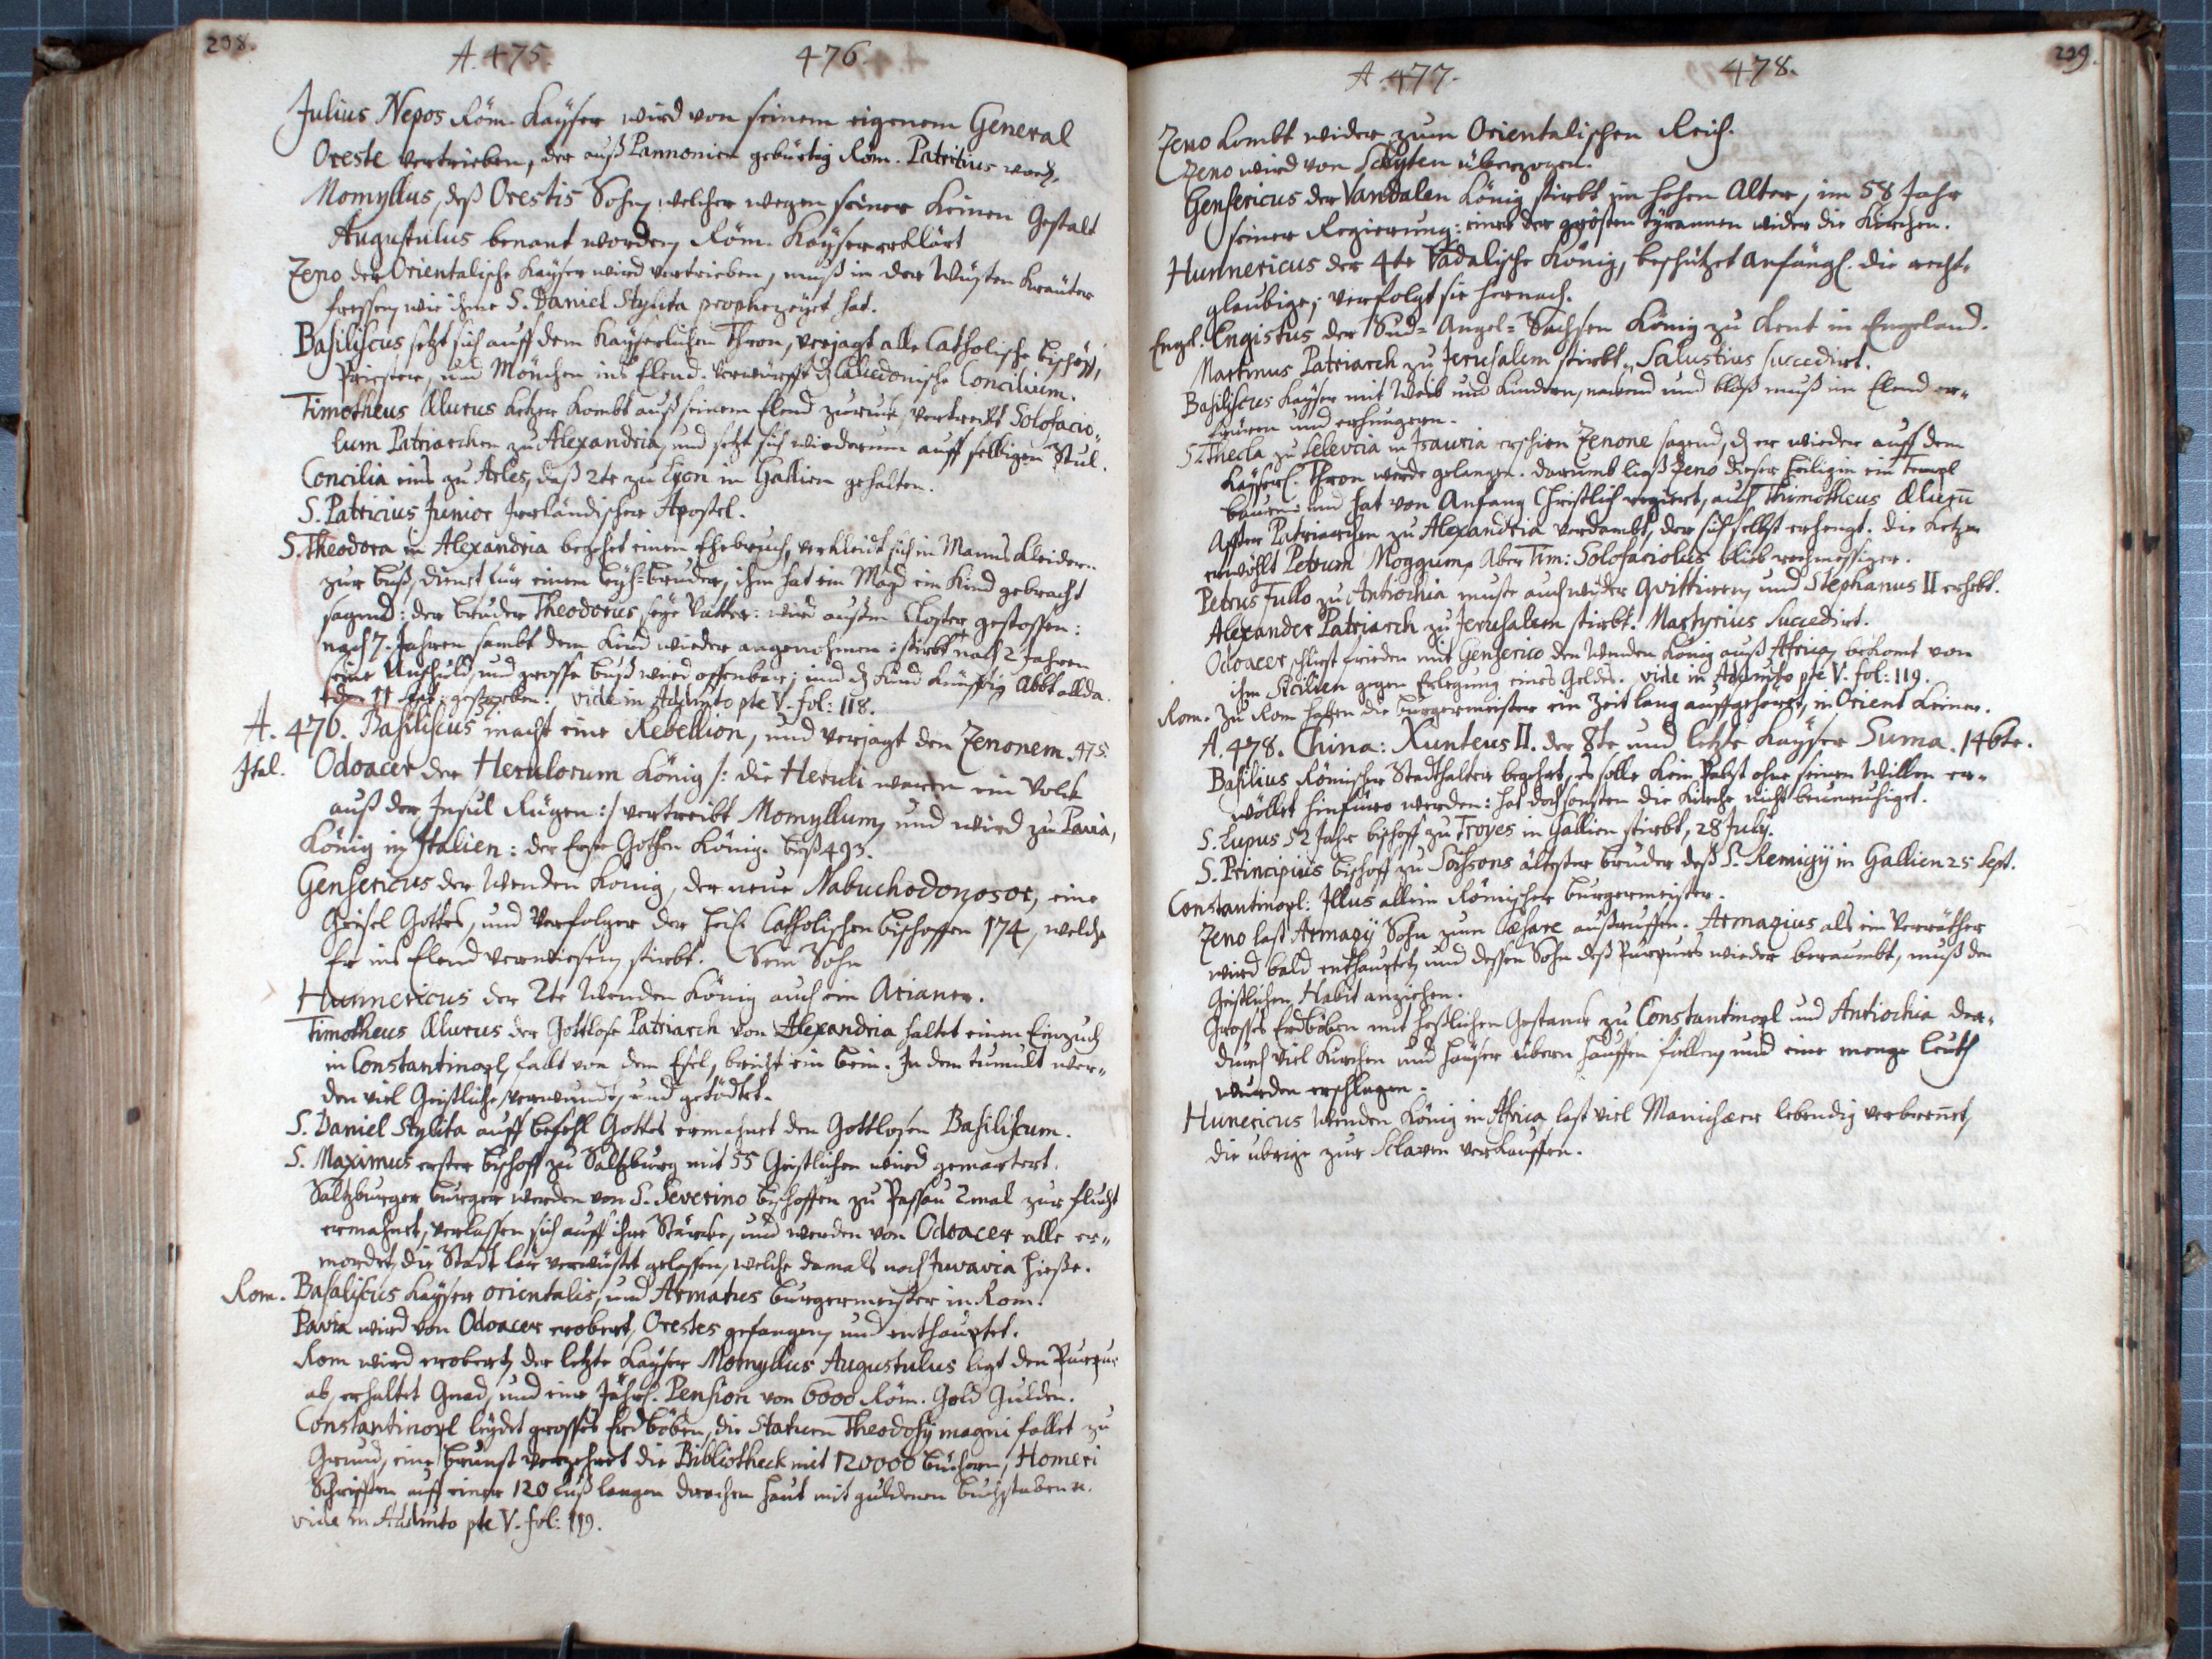 238.
A. 475. 476.
Julius Nepos Röm. Kaÿser wird von seinem eigenem General
Oreste vertrieben, der auß Pannonien gebürtig Röm. Patritius word.
Momyllus, deß Orestis Sohn, welcher wegen seiner kleinen Gestalt
Augustulus benant worden, Röm. Kaÿser erklärt
Zeno der Orientalische Kaÿser wird vertrieben, muß in der Wüsten Kräuter
fressen, wie ihme S. Daniel Stylita prophezeÿet hat.
Basiliscus setzt sich auff dem Kaÿserlichen Thron, verjagt alle Catholische Bischöff,
Priester, und Mönchen ins Elend. Verwürfft dz Calcedonische Concilium.
Timotheus Ælurus Ketzer kombt auß seinem Elend zuruck, vertreibt Solofacio„
lum Patriarchen zu Alexandria, und setzt sich wiederum auff selbigen Stul.
Concilia eins zu Arles, daß 2te zu Lyon in Gallien gehalten.
S. Patricius Junior Irrländischer Apostel.
S. Theodora in Alexandria begehet einen Ehebruch, verkleidt sich in Manns Kleider..
zur Buß, dienet für einen Leÿh=bruder, ihm hat ein Magd ein Kind gebracht
sagend: der Bruder Theodorus seÿe Vatter: wird außm Closter gestossen:
nach 7. Jahren sambt dem Kind wieder angenohmen: stirbt nach 2 Jahren
seine Unschuld, und grosse Buß wird offenbar; und dz Kind künfftig Abbt allda.
den 11 gestorben. vide in Adjunto pte V. fol: 118.
A. 476. Basiliscus macht eine Rebellion, und verjagt den Zenonem. 475.
Ital. Odoacer der Herulorum König /: die Heruli waren ein Volck
auß der Insul Rügen :/ vertreibt Momyllum, und wird zu Pavia,
König in Italien: der Erste Gothen König. biß 493.
Gensericus der Wenden König, der neue Nabuchodonosor, eine
Geisel Gottes, und Verfolger der Catholischen Bischoffen 174, welche
Er ins Elend verwiesen, stirbt. Sein Sohn
Hunnericus der 2te Wenden König auch ein Arianer.
Timotheus Ælurus der Gottlose Patriarch von Alexandria haltet einen Einzuch
in Constantinopl, falt von dem Esel, bricht ein Bein. In dem tumult wer„
den viel Geistliche verwundt, und getödtet.
S. Daniel Stylita auff befehl Gottes ermahnet den Gottlosen Basiliscum.
S. Maximus erster Bischoff zu Saltzburg mit 55 Geistlichen wird gemartert.
Saltzburger Burger werden von S. Severino Bischoffen zu Passau 2mal zur flucht
ermahnet, verlassen sich auff ihre Stärcke, und werden von Odoacer alle er„
mordet, die Stadt lär verwüstet gelassen, welche damals noch Juvavia hieße.
Rom. Basaliscus Kaÿser orientalis, und Armatus Burgermeister in Rom.
Pavia wird von Odoacer erobert, Orestes gefangen, und enthauptet.
Rom wird erobert, der letzte Kaÿser Momyllus Augustulus legt den Purpur
ab, erhaltet Gnad, und eine Jährl. Pension von 6000 Röm. Gold Gulden.
Constantinopl leÿdet grosses Erdböben, die Statuen Theodosÿ magni fallet zu
Grund, eine Brunst verzehret die Bibliotheck mit 120000 Büchern, Homeri
Schrifften auff einer 120 Fuß langen drachen Haut mit guldenen Buchstaben
vide in Adjunto pte V. fol: 119.
239.
A. 477. 478.
Zeno kombt wider zum Orientalischen Reich.
Zeno wird von Scÿten überzogen.
Gensericus der Vandalen König stirbt im hohen Alter, im 58 Jahr
seiner Regierung: einer der grösten tyrannen wider die Kirchen.
Hunnericus der 4te Vādalische König, beschützet anfängl. die recht„
glaubige, verfolgt sie hernach.
Engel. Engistus der Sud=Angel=Sachsen König zu Kent in Engeland.
Martinus Patriarch zu Jerusalem stirbt, Salustius succedirt.
Basiliscus Kaÿser mit Weib und Kindern, nacend und bloß muß im Elend er„
früren und erhungern.
S. Thecla zu Selevcia in Isauria erschien Zenone sagend, dz er wieder auff dem
Kaÿserl. Thron werde gelangen. darumb ließ Zeno dieser Heiligin ein Templ
bauen: und hat von Anfang Christlich regiert, auch Thimotheus Ælurū
Affter Patriarchen zu Alexandria verdambt, der sich selbst erhengt. die Ketzer
erwöhlt Petrum Moggum, Aber Tim: Solofaciolus blieb rechmessiger.
Petrus Fullo zu Antiochia muste auch wider quittiren, und Stephanus II erhebt.
Alexander Patriarch zu Jerusalem stirbt. Martyrius Succedirt.
Odoacer schliest frieden mit Genserico den Wenden König auß Africa, bekomt von
ihm Sicilien gegen Erlegung eines Gelds. vide in Adjunto pte V. fol: 119.
Rom. Zu Rom haben die Burgermeister ein Zeit lang auffgehöret, in Orient keiner.
A. 478. China: Xunteus II. der 8te und letzte Kaÿser Suma. 146te.
Basilius Römischer Stadthalter begehrt, es solle kein Pabst ohne seinen Willen er„
wöllet hinfüro werden: hat doch sonsten die Kirche nicht beunruhiget.
S. Lupus 52 Jahr Bischoff zu Troyes in Gallien stirbt, 28 July.
S. Principius Bischoff zu Soissons ältester Bruder deß S. Remigÿ in Gallien 25 Sept.
Constantinopl: Illus allein Römischer Burgermeister.
Zeno last Armagÿ Sohn zum Cæsare außruffen. Armagius als ein Verräther
wird bald enthauptet, und dessen Sohn deß Purpurs wieder beraumbt, muß den
Geistlichen Habit anziehen.
Grosses Erdböben mit heßlichen Gestanck zu Constantinopl und Antiochia da„
durch viel Kirchen und Häuser übern hauffen fallen, und eine menge leuth
wurden erschlagen.
Hunericus Wenden König in Africa last viel Manichæer lebendig verbrennet,
die übrige zur Sclaven verkauffen.